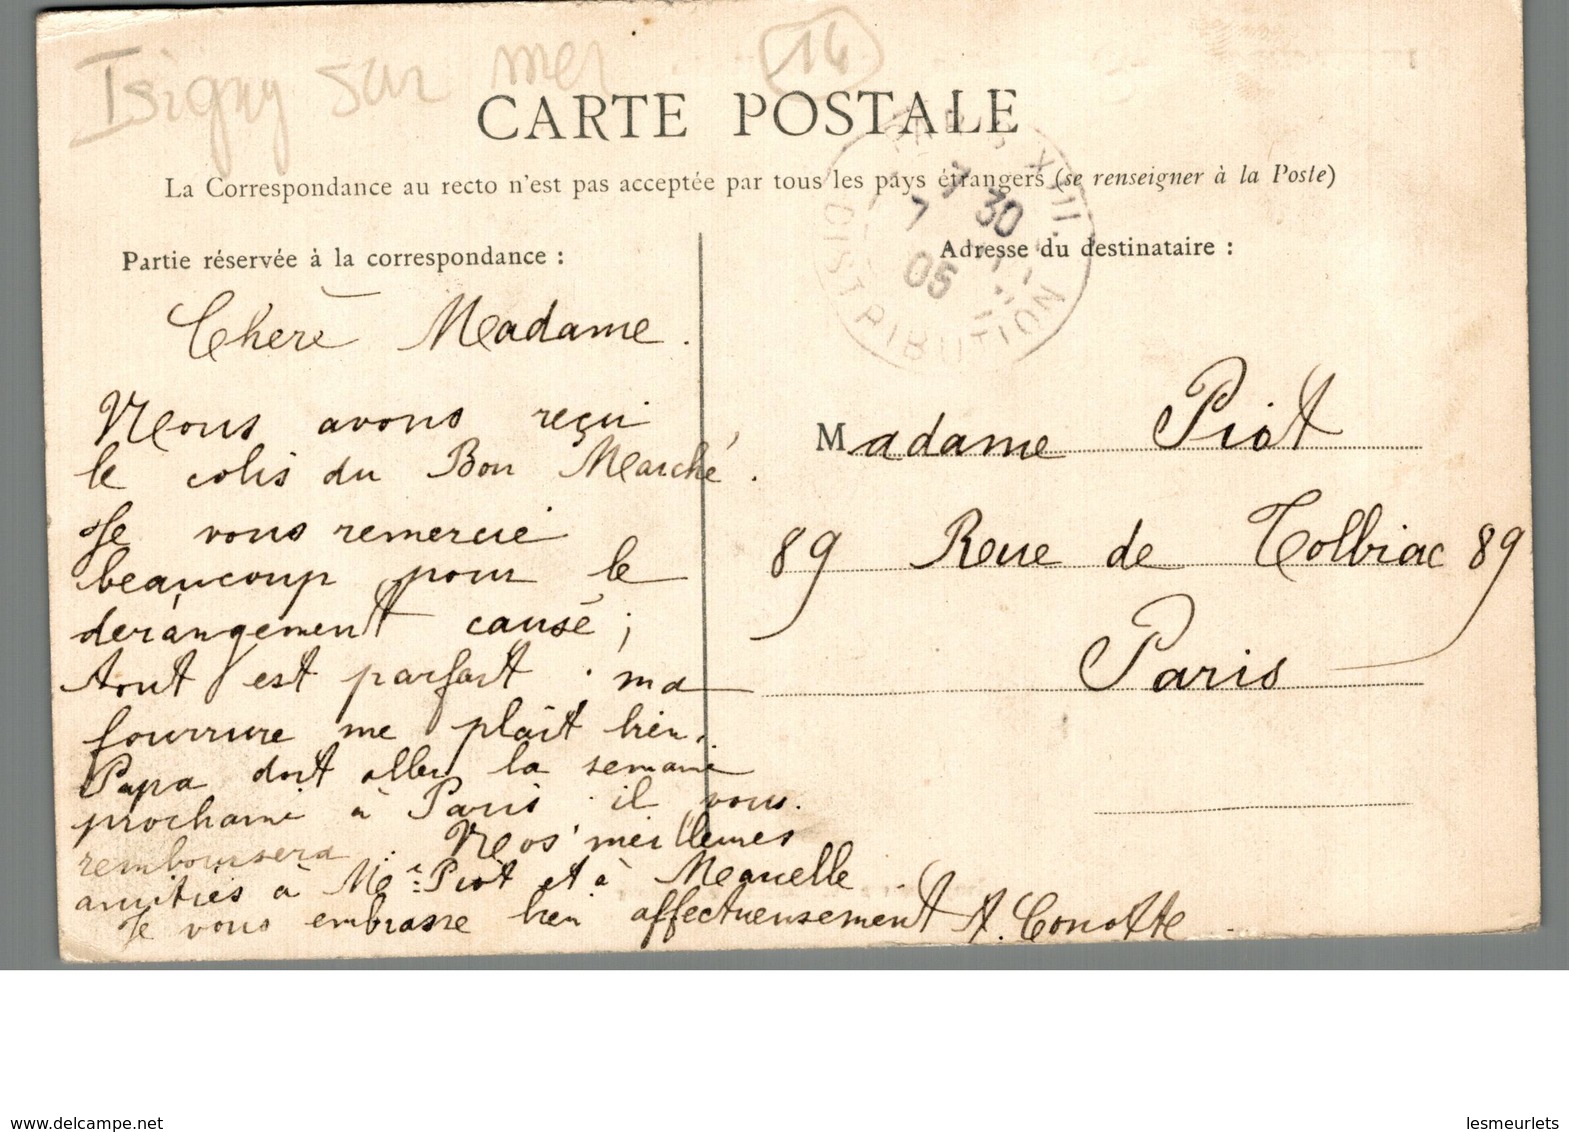 Isigny sur mer
14
CARTE POSTALE
La Correspondance au recto n'est pas acceptée par tous les pays étrangers (se renseigner à la Poste)
PARIS XIII
7 30
7
05
DISTRIBUTION
Partie réservée à la correspondance :
Chère Madame.
Nous avons reçu
le colis du Bon Marché.
Je vous remercie
beaucoup pour le
dérangement causé ;
tout est parfait. ma
fourrure me plaît bien.
Papa doit aller la semaine
prochaine à Paris. il vous.
remboursera. Nos meilleures
amitiés à Me Piot et à Marcelle.
Je vous embrasse bien affectueusement A. Conotte
Adresse du destinataire :
Madame Piot
89 Rue de Tolbiac 89
Paris
www.delcampe.net
lesmeurlets